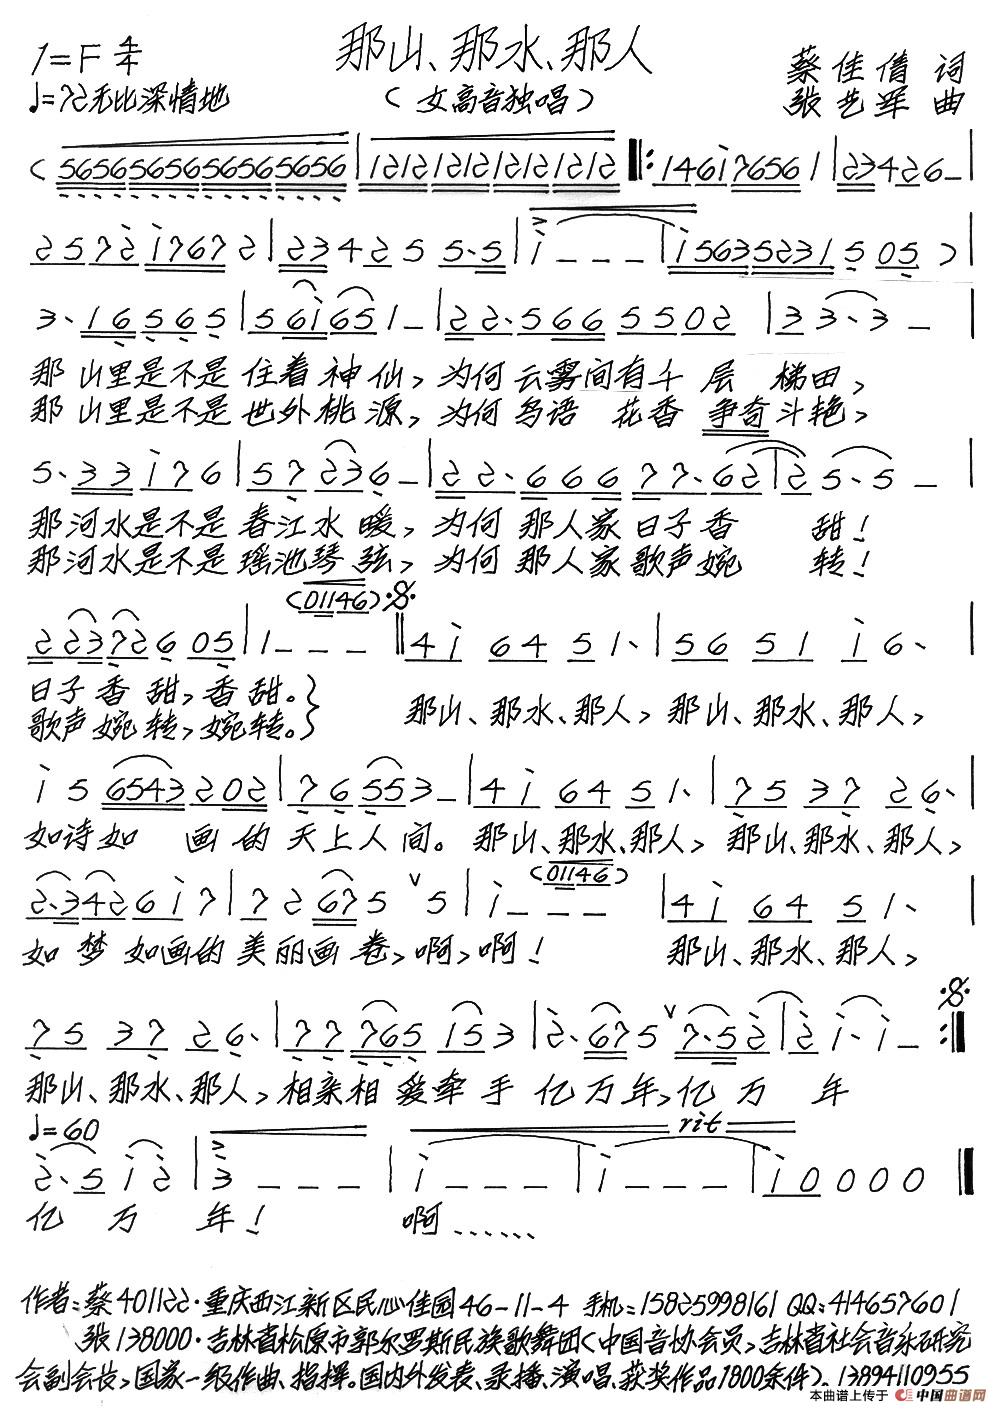 那山、那水、那人
1=F 4/4
(女高音独唱)
蔡佳倩 词
♩=72无比深情地
张艺军 曲
(5656565656565656|1212121212121212‖:146i76561|234266–|
2572i7672|2342 5 5·5|i – – –|i5635231 5 05)|
3·16565|56i651–|22·566 5502|3 3·3 –|
那山里是不是住着神仙,为何云雾间有千层梯田,
那山里是不是世外桃源,为何鸟语花香争奇斗艳,
5·33i76|57236–|22·666 77·62|25·5 –|
那河水是不是春江水暖,为何那人家日子香甜!
那河水是不是瑶池琴弦,为何那人家歌声婉转!
(01146)
22372605|1 – – –‖4i 64 51·|56 51 i6·|
日子香甜,香甜。}
歌声婉转,婉转。} 那山、那水、那人,那山、那水、那人,
i5 6543202|76553–|4i 64 51·|75 37 26·|
如诗如画的天上人间。那山、那水、那人,那山、那水、那人,
(01146)
2·3426i7|72675 ∨5|i – – –|4i 64 51·|
如梦如画的美丽画卷,啊,啊! 那山、那水、那人,
75 37 26·|77765 153|2·675∨7·52|2i·i –:‖
那山、那水、那人,相亲相爱牵手亿万年,亿万年
♩=60
rit
2·5i2|3 – – –|i – – –|i – – –|i0000‖
亿万年! 啊……
作者:蔡401122·重庆西江新区民心佳园46-11-4 手机:15825998161 QQ:414657601
张138000·吉林省松原市郭尔罗斯民族歌舞团(中国音协会员,吉林省社会音乐研究
会副会长,国家一级作曲、指挥。国内外发表、录播、演唱、获奖作品1800余件)、13894110955
本曲谱上传于 中国曲谱网